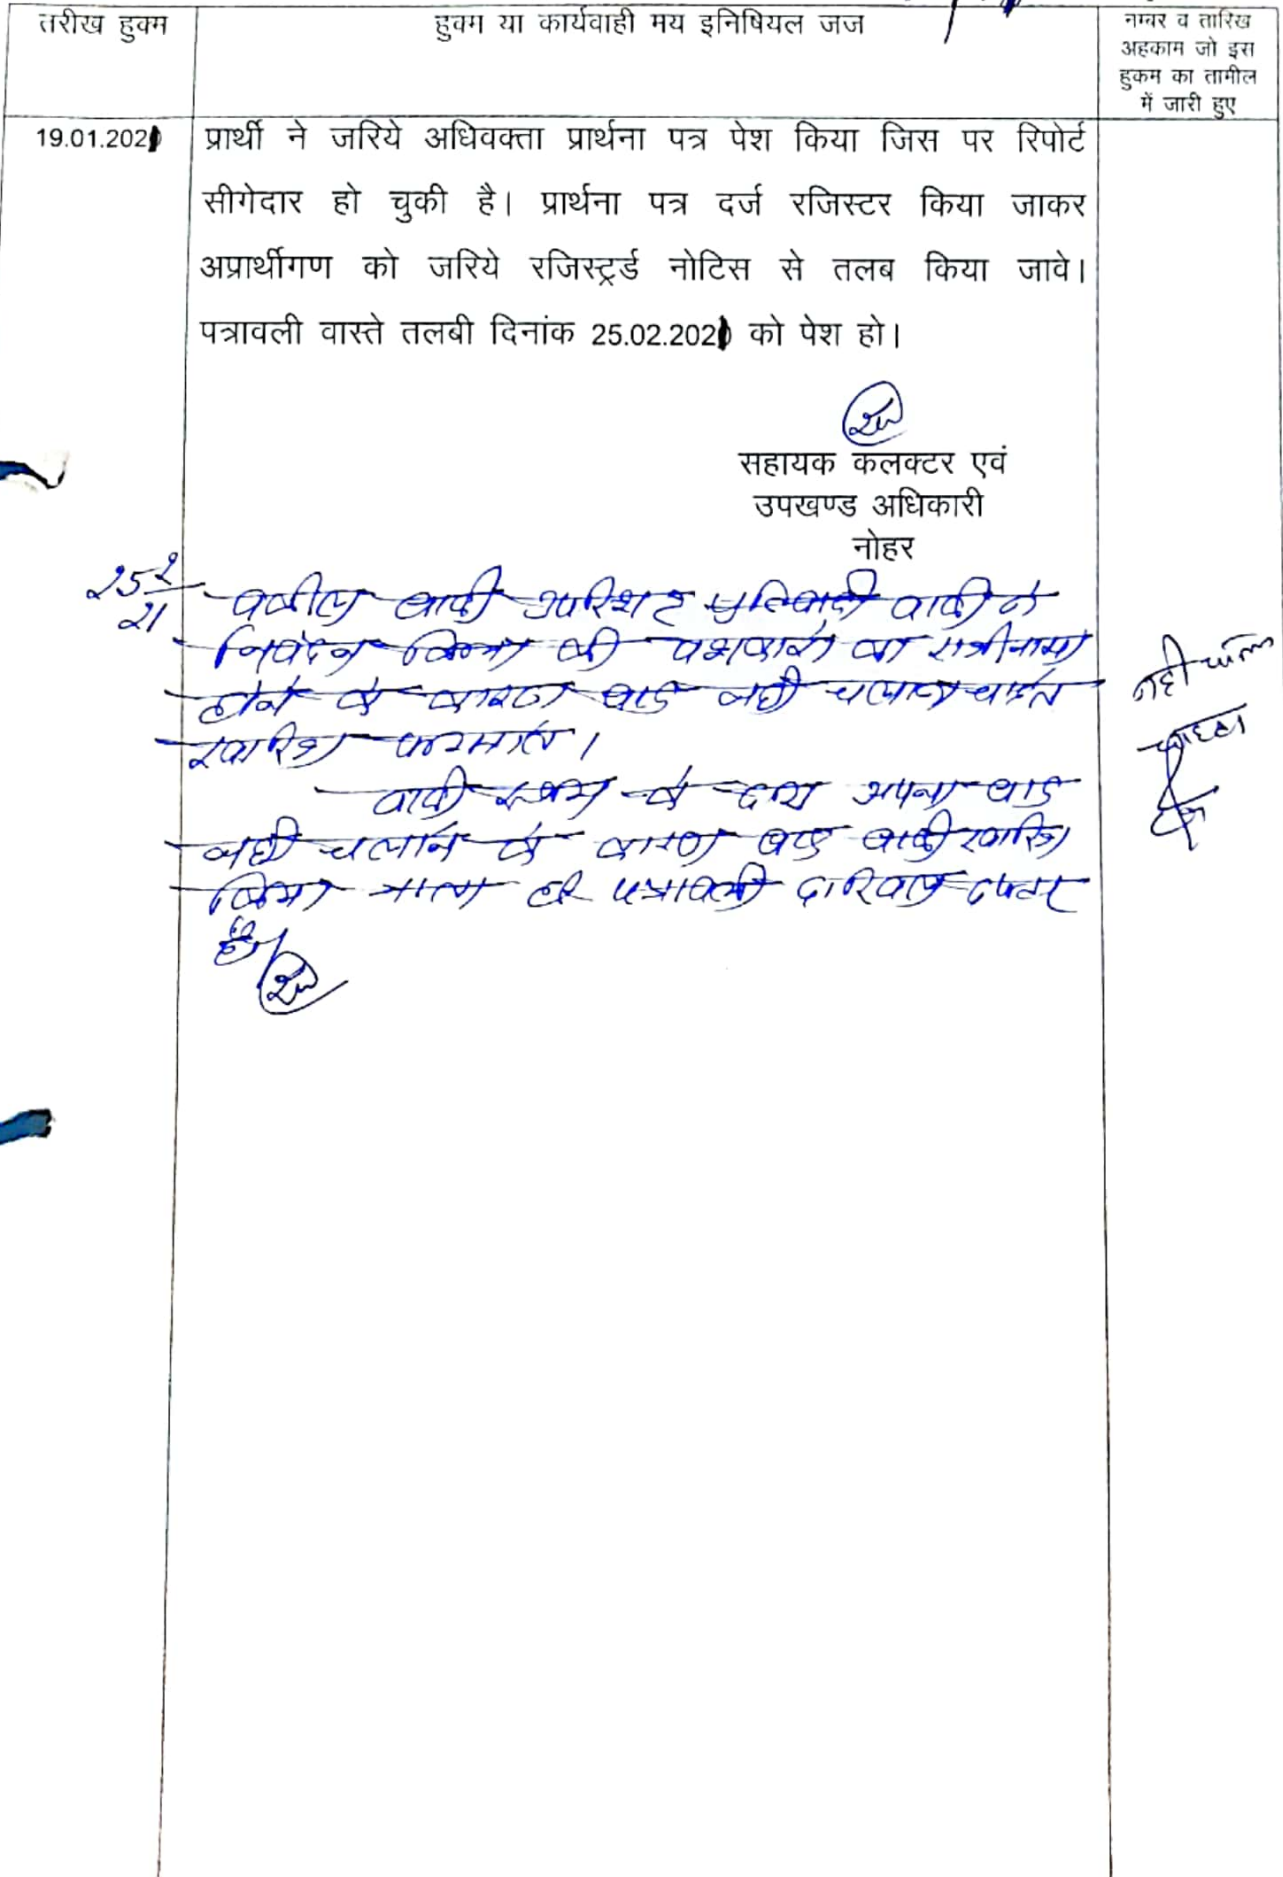 तरीख हुक्म
हुक्म या कार्यवाही मय इनिषियल जज
नम्बर व तारिख
अहकाम जो इस
हुकम का तामील
में जारी हुए
19.01.2021
प्रार्थी ने जरिये अधिवक्ता प्रार्थना पत्र पेश किया जिस पर रिपोर्ट
सीगेदार हो चुकी है। प्रार्थना पत्र दर्ज रजिस्टर किया जाकर
अप्रार्थीगण को जरिये रजिस्ट्रर्ड नोटिस से तलब किया जावे।
पत्रावली वास्ते तलबी दिनांक 25.02.2021 को पेश हो।
सहायक कलक्टर एवं
उपखण्ड अधिकारी
नोहर
25 2
21
वकील वादी उपस्थित वादी ने
निवेदन किया की पक्षकारो का राजीनामा
होने के कारण वाद नही चलाना चाहते
खारिज फरमावे।
वादी स्वयम के द्वारा अपना वाद
नही चलाने के कारण वाद वादी खारिज
किया जाता है पत्रावली दाखिल दफ्तर
हो।
नही
चाहता